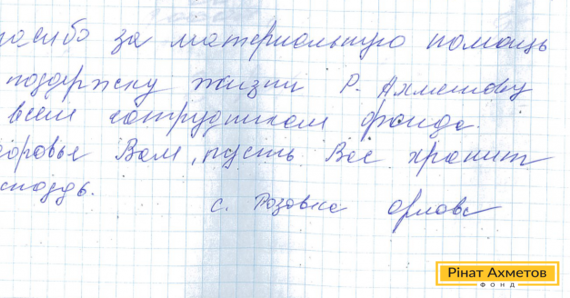 пасибо за материальную помощь
поддержку жизни Р. Ахметову
всем сотрудникам фонда.
доровье Вам, пусть Вас хранит
сподь.
с. Розовка Орлова
Рінат Ахметов
ФОНД